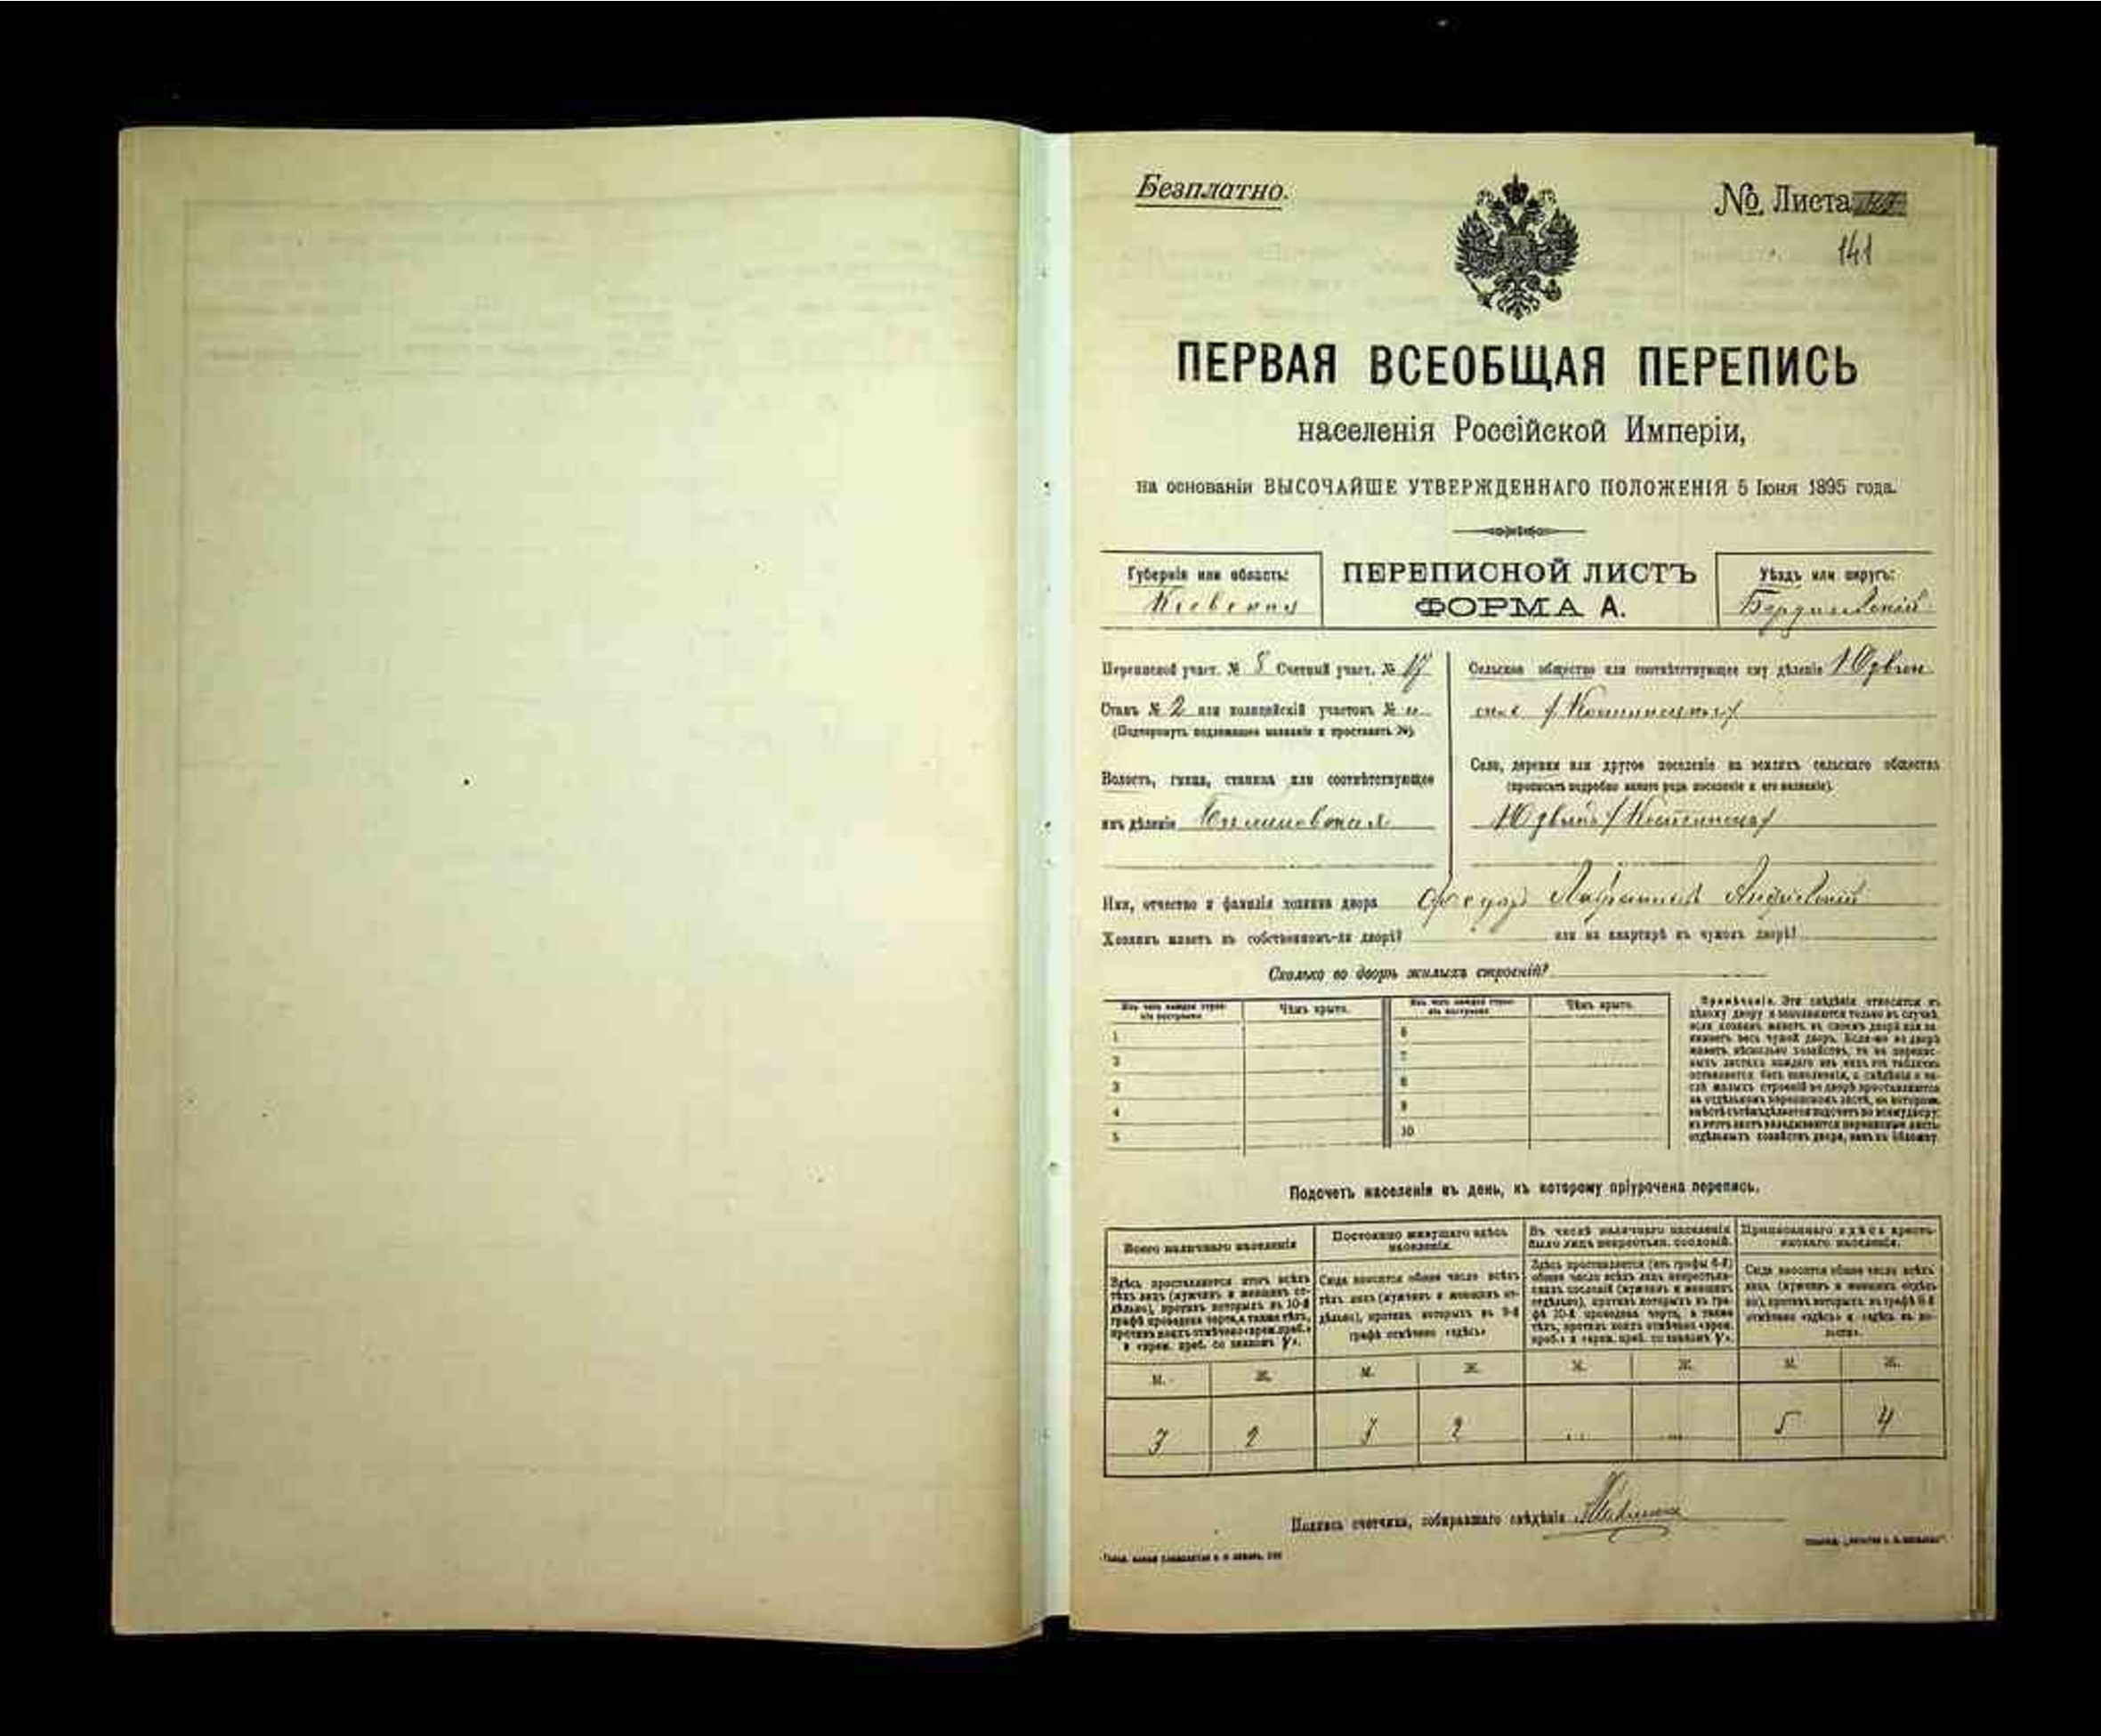 Безплатно.
№ Листа
141
ПЕРВАЯ ВСЕОБЩАЯ ПЕРЕПИСЬ
населенія Россійской Имперіи,
на основаніи ВЫСОЧАЙШЕ УТВЕРЖДЕННАГО ПОЛОЖЕНІЯ 5 Іюня 1895 года.
Губернія или область:
Кіевская
ПЕРЕПИСНОЙ ЛИСТЪ
ФОРМА А.
Уѣздъ или округъ:
Бердичевскій
Переписной участ. № 8 Счетный участ. № 17
Станъ № 2 или полицейскій участокъ №
(Подчеркнуть подлежащее названіе и проставить №).
Волость, гмина, станица или соотвѣтствующее
имъ дѣленіе
Сельское общество или соотвѣтствующее ему дѣленіе
Село, деревня или другое поселеніе на земляхъ сельскаго общества
(прописать подробно какого рода поселеніе и его названіе).
Имя, отчество и фамилія хозяина двора
Хозяинъ живетъ въ собственномъ-ли дворѣ? или на квартирѣ въ чужомъ дворѣ?
Сколько во дворѣ жилыхъ строеній?
Изъ чего каждое строе-
ніе построено
Чѣмъ крыто.
Изъ чего каждое строе-
ніе построено
Чѣмъ крыто.
1
2
3
4
5
6
7
8
9
10
Примѣчаніе. Эти свѣдѣнія относятся къ
цѣлому двору и заполняются только въ случаѣ,
если хозяинъ живетъ въ своемъ дворѣ или за-
нимаетъ весь чужой дворъ. Если-же во дворѣ
имѣетъ нѣсколько хозяйствъ, то на перепис-
ныхъ листахъ каждаго изъ нихъ эта табличка
оставляется безъ заполненія, а свѣдѣнія о чи-
слѣ жилыхъ строеній во дворѣ проставляются
на отдѣльномъ переписномъ листѣ, на которомъ
вмѣстѣ съ тѣмъ дѣлается подсчетъ по всему двору;
въ этотъ листъ вкладываются переписные листы
отдѣльныхъ хозяйствъ двора, какъ въ обложку.
Подсчетъ населенія въ день, къ которому пріурочена перепись.
Всего наличнаго населенія
Постоянно живущаго здѣсь
населенія.
Въ числѣ наличнаго населенія
было лицъ некрестьян. сословій.
Приписаннаго здѣсь кресть-
янскаго населенія.
Здѣсь проставляется итогъ всѣхъ
тѣхъ лицъ (мужчинъ и женщинъ от-
дѣльно), противъ которыхъ въ 10-й
графѣ проведена черта, а также тѣхъ,
противъ коихъ отмѣчено «врем. преб.»
и «врем. преб. со знакомъ V».
Сюда вносится общее число всѣхъ
тѣхъ лицъ (мужчинъ и женщинъ от-
дѣльно), противъ которыхъ въ 9-й
графѣ отмѣчено «здѣсь»
Здѣсь проставляется (изъ графы 4-й)
общее число всѣхъ лицъ некрестьян-
скихъ сословій (мужчинъ и женщинъ
отдѣльно), противъ которыхъ въ гра-
фѣ 10-й проведена черта, а также
тѣхъ, противъ коихъ отмѣчено «врем.
преб.» и «врем. преб. со знакомъ V».
Сюда вносится общее число всѣхъ
лицъ (мужчинъ и женщинъ отдѣль-
но), противъ которыхъ въ графѣ 8-й
отмѣчено «здѣсь» и «здѣсь въ во-
лости».
М. Ж. М. Ж. М. Ж. М. Ж.
3 2 3 2 5 4
Подпись счетчика, собиравшаго свѣдѣнія